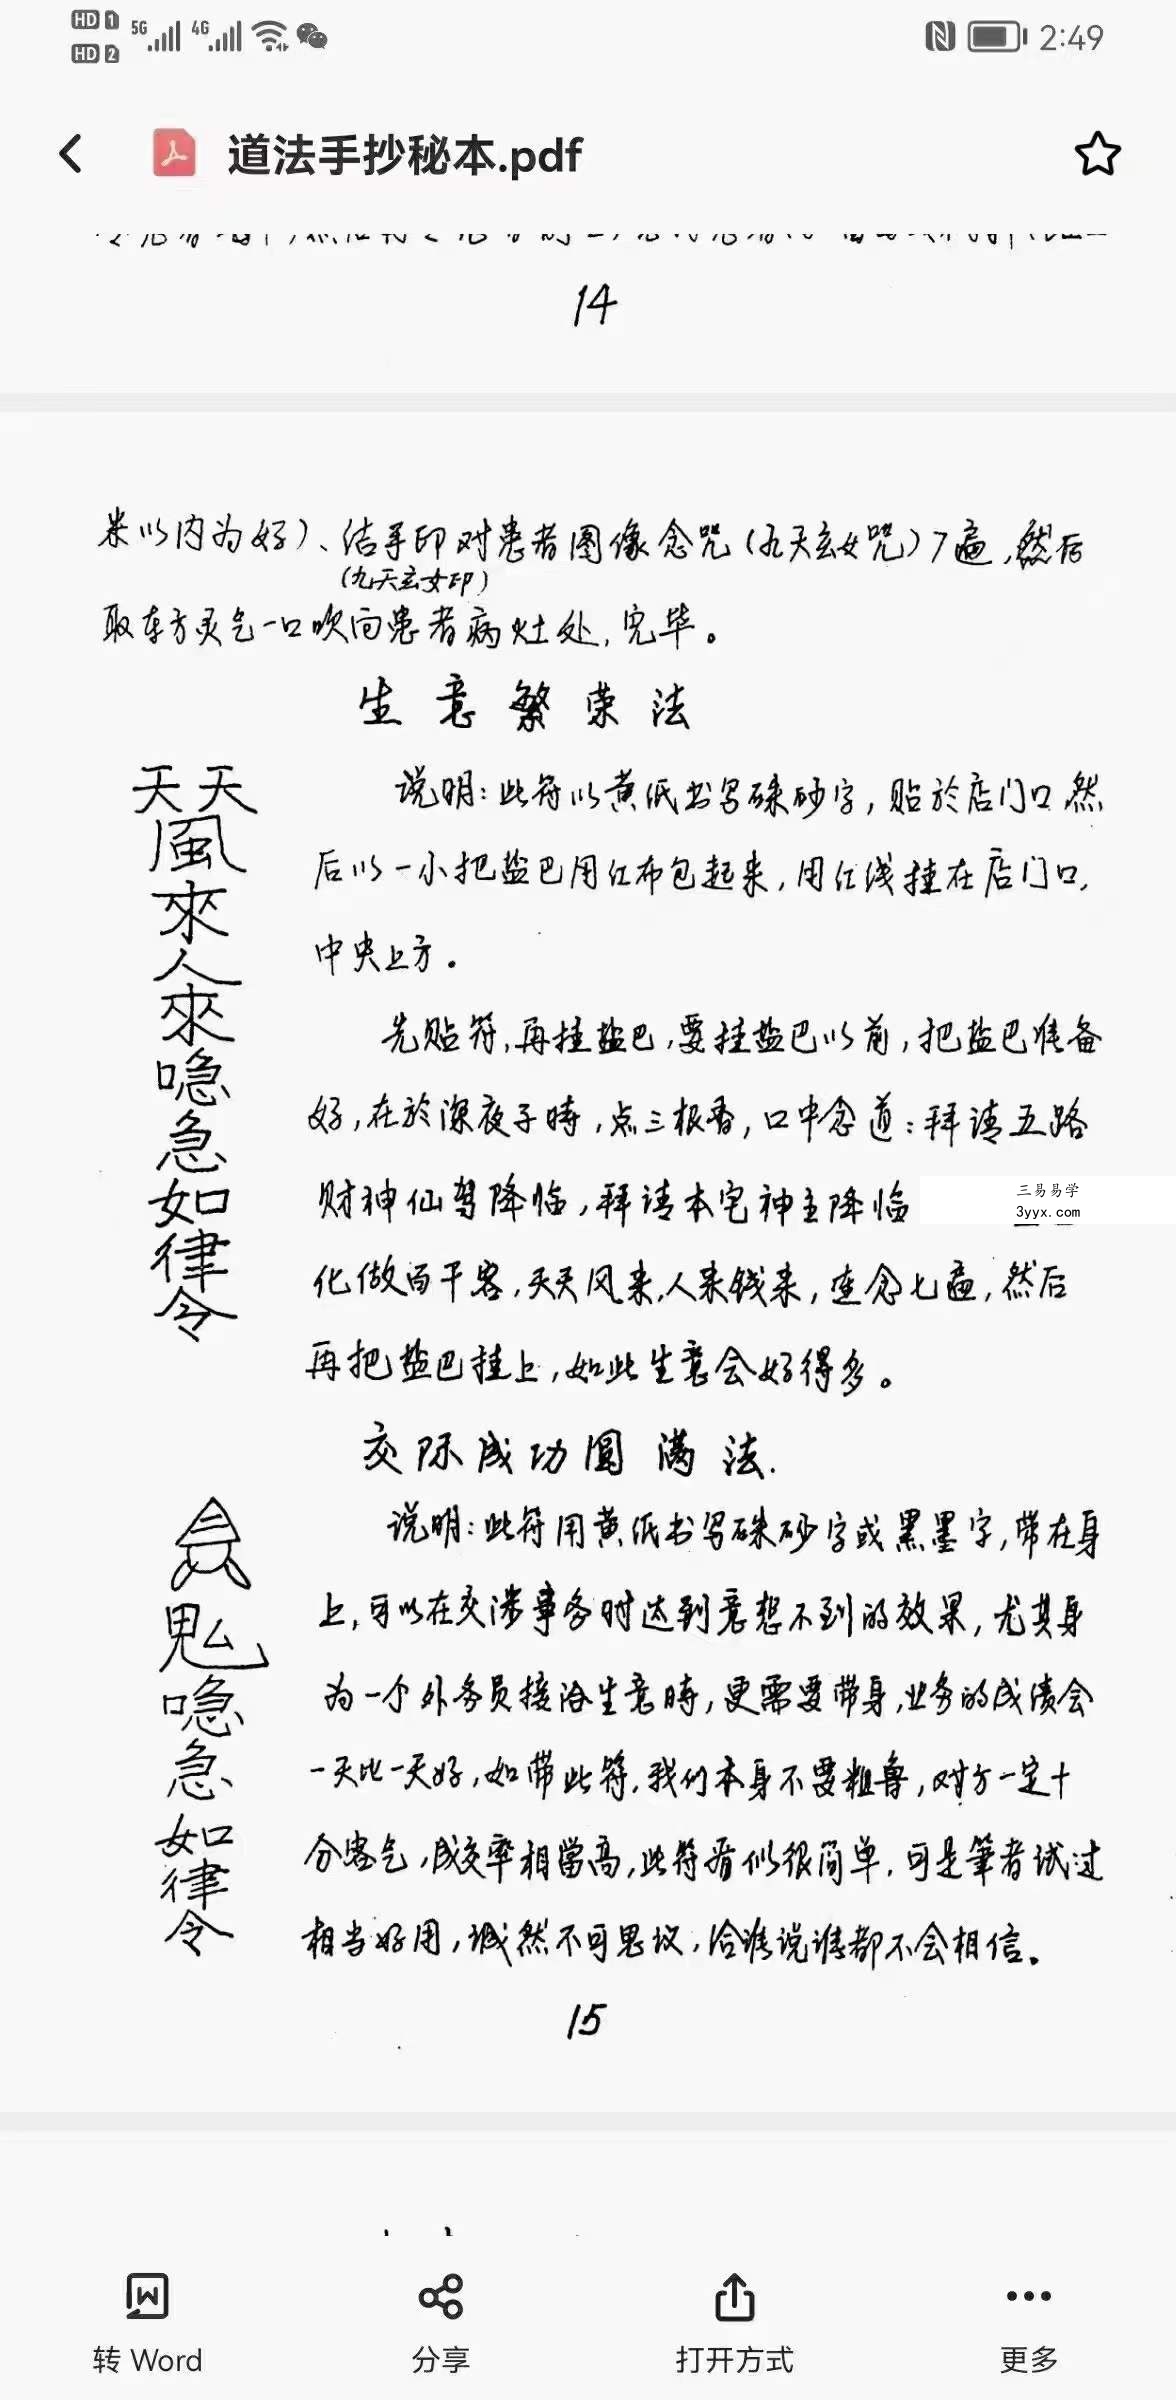 HD 1 5G 4G 2:49
HD 2
道法手抄秘本.pdf
14
米以内为好)、结手印对患者图像念咒(九天玄女咒)7遍,然后
(九天玄女印)
取东方灵气一口吹向患者病灶处,完毕。
生意繁荣法
天天
風
來
人
來
喼
急
如
律
令
说明:此符以黄纸书写硃砂字,贴於店门口,然
后以一小把盐巴用红布包起来,用红线挂在店门口,
中央上方。
先贴符,再挂盐巴,要挂盐巴以前,把盐巴准备
好,在於深夜子時,点三根香,口中念道:拜请五路
财神仙驾降临,拜请本宅神主降临
三易易学
3yyx.com
化做百千客,天天风来,人来钱来,连念七遍,然后
再把盐巴挂上,如此生意会好得多。
交际成功圆满法.
喼
急
如
律
令
说明:此符用黄纸书写硃砂字或黑墨字,带在身
上,可以在交涉事务时达到意想不到的效果,尤其身
为一个外务员接洽生意時,更需要带身,业务的成绩会
一天比一天好,如带此符,我们本身不要粗鲁,对方一定十
分客气,成交率相當高,此符看似很简单,可是筆者试过
相当好用,诚然不可思议,给谁说谁都不会相信。
15
转 Word
分享
打开方式
更多